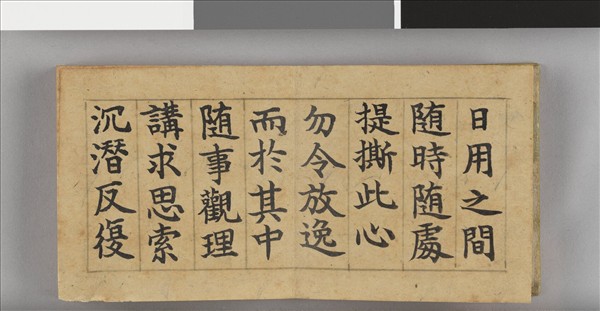 日用之間
随時随處
提撕此心
勿令放逸
而於其中
随事觀理
講求思索
沉潛反復